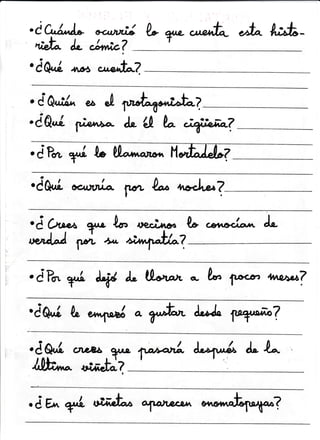 •¿Cuándo ocurrió lo que cuenta esta histo-
rieta de cómic?
•¿Qué nos cuenta?
•¿Quién es el protagonista?
•¿Qué piensa de él la cigüeña?
•¿Por qué le llamaron Mortadelo?
•¿Qué ocurría por las noches?
•¿Crees que los vecinos lo conocían de
verdad por su simpatía?
•¿Por qué dejó de llorar a los pocos meses?
•¿Qué le empezó a gustar desde pequeño?
•¿Qué crees que pasará después de la
última viñeta?
•¿En qué viñetas aparecen onomatopeyas?